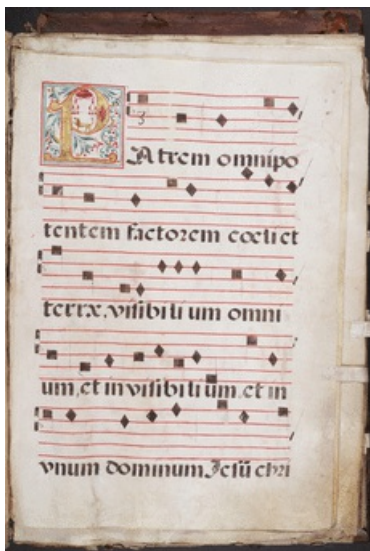 PAtrem omnipo
tentem factorem cœli et
terræ, visibili um omni
um, et in visibili um, et in
vnum dominum Jesū chri